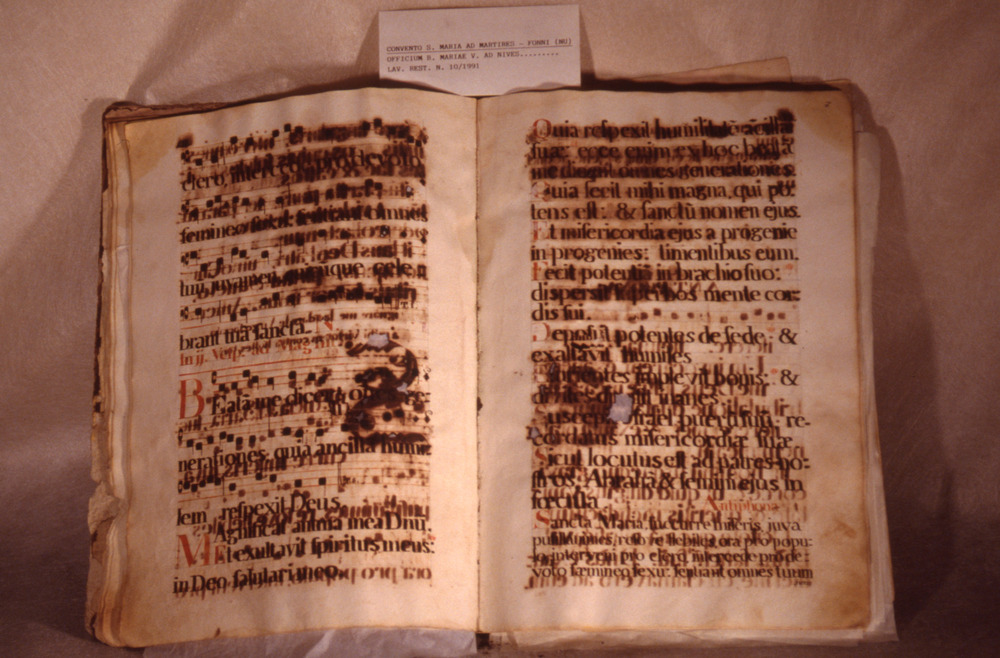 CONVENTO S. MARIA AD MARTIRES - FONNI (NU)
OFFICIUM B. MARIAE V. AD NIVES.........
LAV. REST. N. 10/1991
clero, intercede pro devoto
femineo sexu: sentiant omnes
tuum juvamen, quicumque cele
brant tuã sanctã.
In ij. Vesp.
Beata me dicent omnes ge:
nerationes, quia ancillã humi:
lem respexit Deus.
Magnificat anima mea Dnũ.
Et exultavit spiritus meus:
in Deo salutari meo.
Quia respexit humilitatẽ ancillæ
suæ: ecce enim ex hoc beatã
me dicent omnes generationes.
Quia fecit mihi magna, qui po:
tens est: & sanctũ nomen ejus.
Et misericordia ejus a progenie
in progenies: timentibus eum.
Fecit potentiã in brachio suo:
dispersit superbos mente cor:
dis sui.
Deposuit potentes de sede: &
exaltavit humiles
Esurientes implevit bonis: &
divites dimisit inanes.
Suscepit Israel puerũ suũ: re-
cordatus misericordiæ suæ.
Sicut locutus est ad patres no-
stros: Abrahã & semini ejus in
sæcula.
Antiphona.
Sancta Maria, succurre miseris, juva
pusillanimes, refove flebiles, ora pro popu:
lo, interveni pro clero, intercede pro de:
voto fæmineo sexu: sentiant omnes tuum